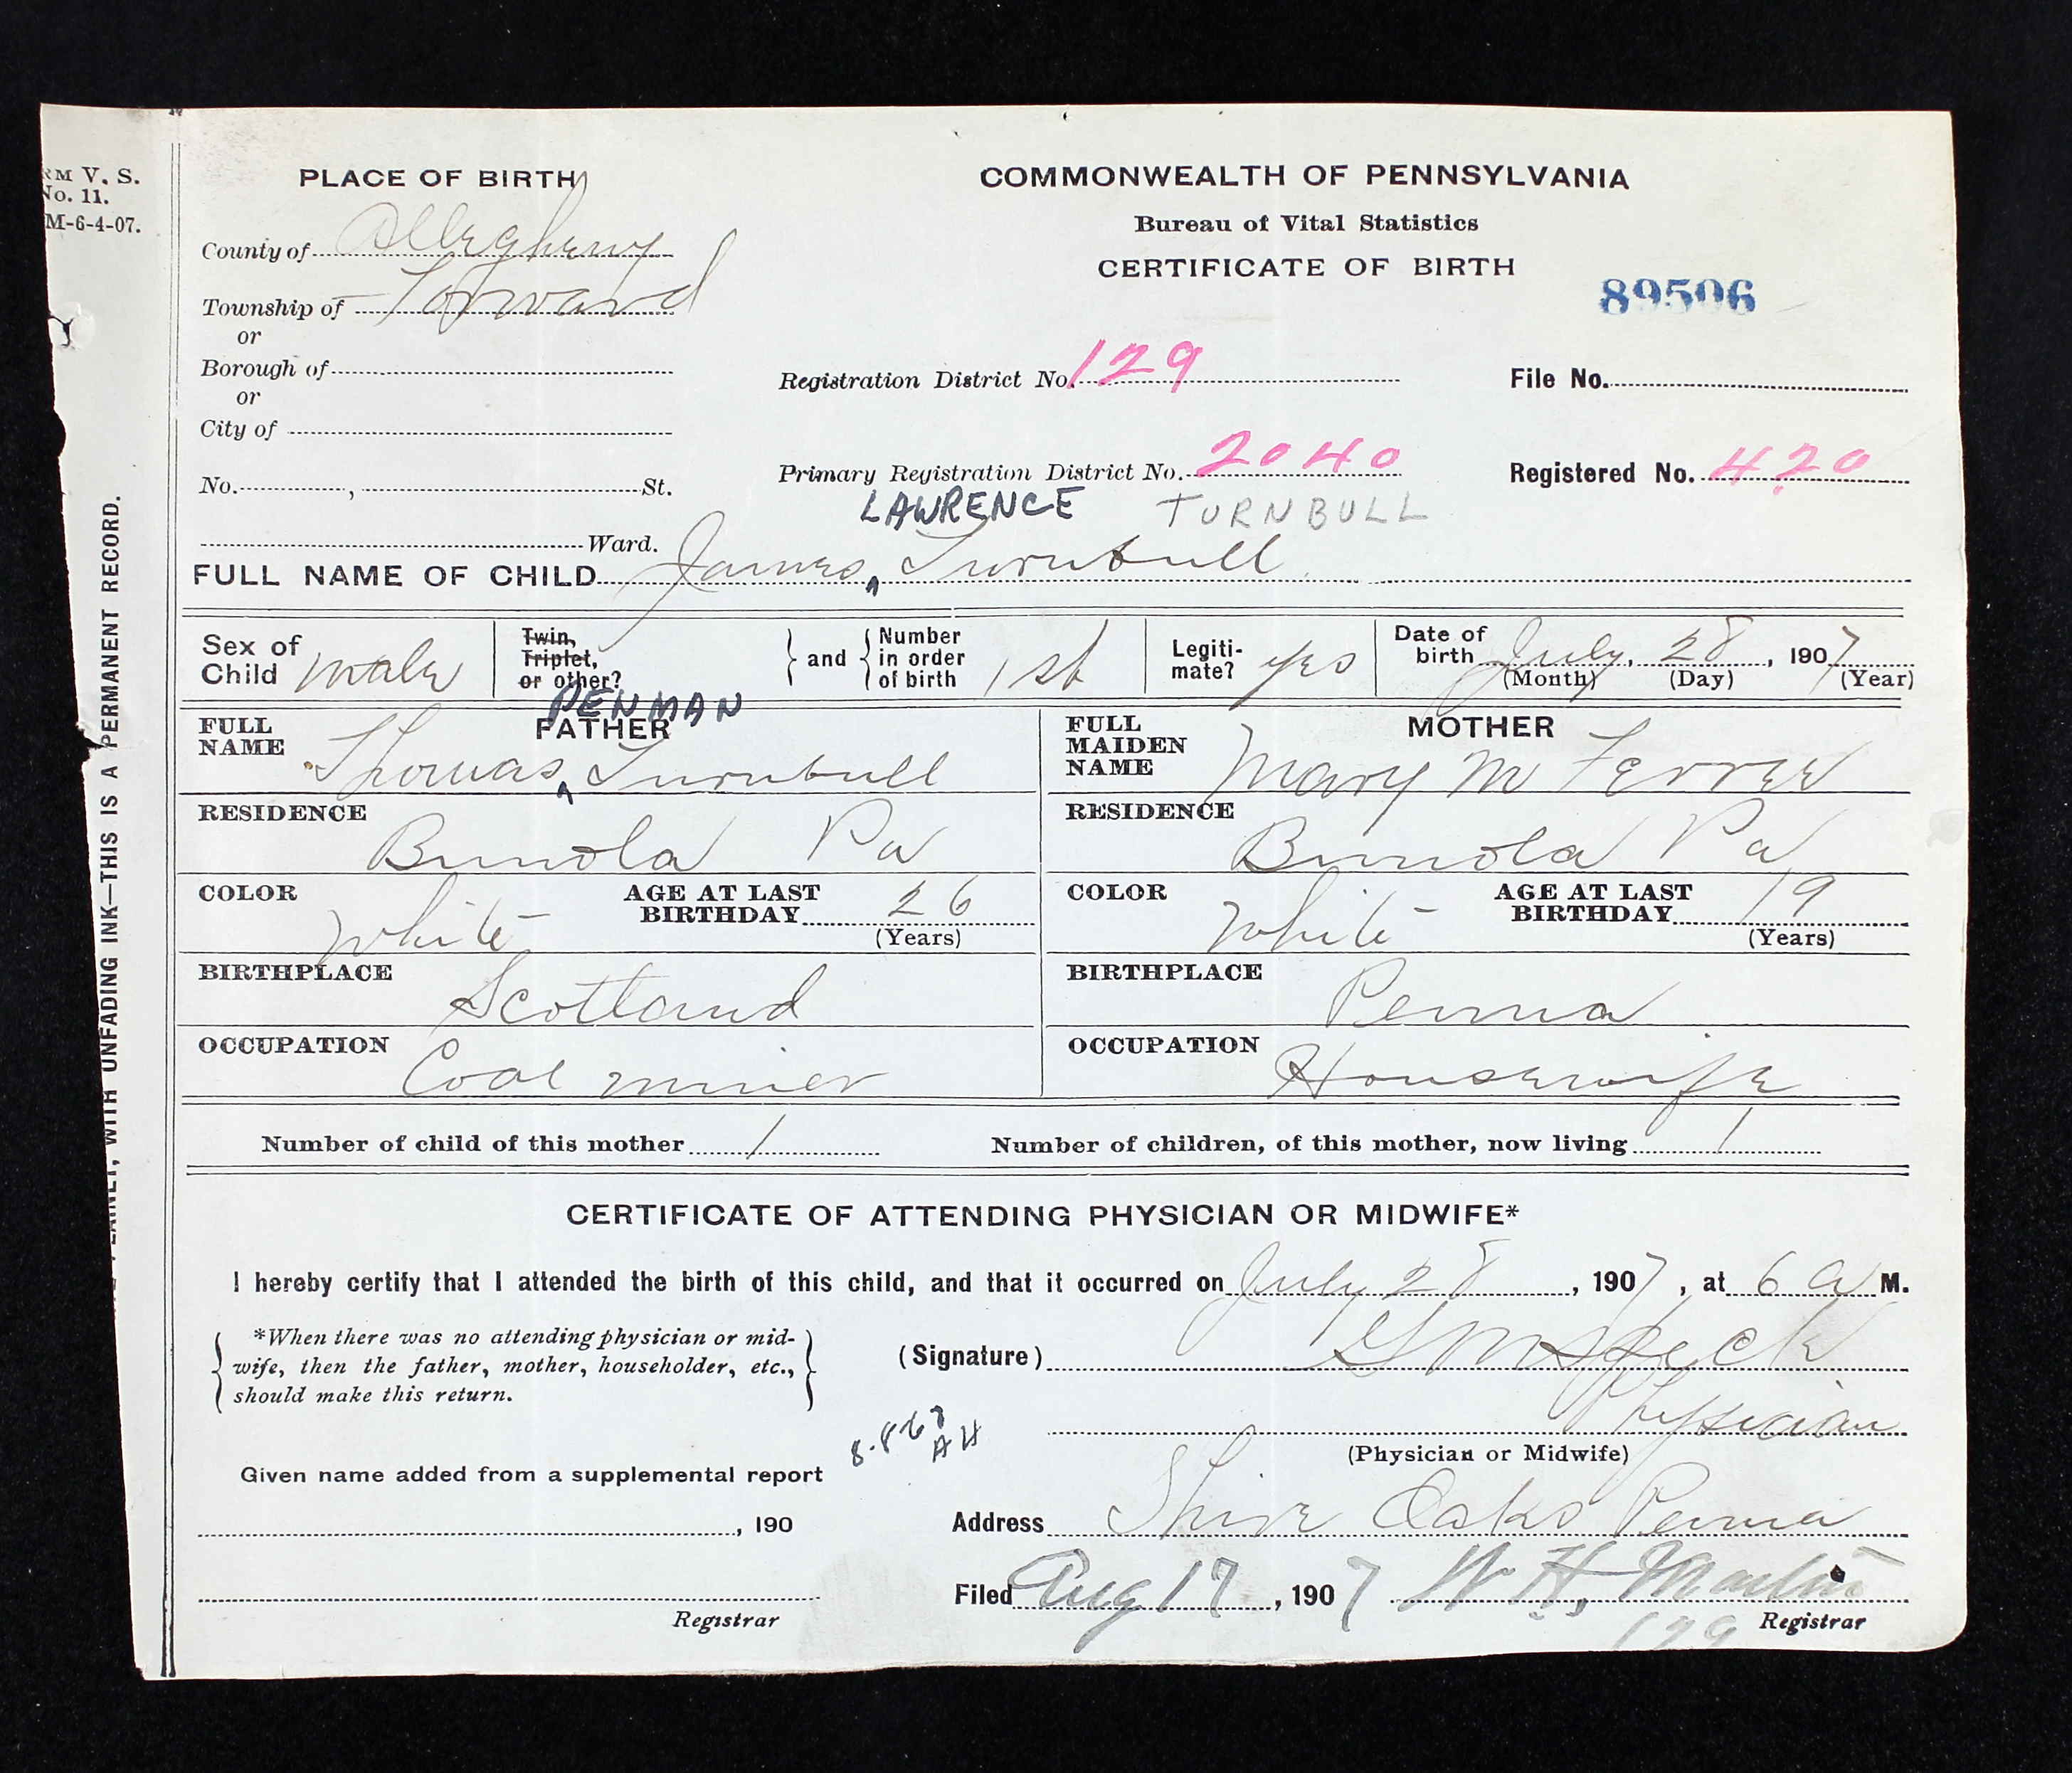 RM V. S.
No. 11.
M-6-4-07.
WITH UNFADING INK—THIS IS A PERMANENT RECORD.
PLACE OF BIRTH
County of Allegheny
Township of Forward
or
Borough of
or
City of
No. , St.
Ward.
COMMONWEALTH OF PENNSYLVANIA
Bureau of Vital Statistics
CERTIFICATE OF BIRTH
89506
Registration District No. 129
File No.
Primary Registration District No. 2040
Registered No. 420
LAWRENCE TURNBULL
FULL NAME OF CHILD James ^ Turnbull
Sex of Child male
Twin, Triplet, or other?
and
Number in order of birth 1st
Legitimate? yes
Date of birth July, 28, 1907
(Month) (Day) (Year)
PENMAN
FATHER
FULL NAME Thomas ^ Turnbull
RESIDENCE
Bunola Pa
COLOR White
AGE AT LAST BIRTHDAY 26
(Years)
BIRTHPLACE
Scotland
OCCUPATION
Coal miner
MOTHER
FULL MAIDEN NAME Mary M Ferree
RESIDENCE
Bunola Pa
COLOR White
AGE AT LAST BIRTHDAY 19
(Years)
BIRTHPLACE
Penna
OCCUPATION
Housewife
Number of child of this mother 1
Number of children, of this mother, now living 1
CERTIFICATE OF ATTENDING PHYSICIAN OR MIDWIFE*
I hereby certify that I attended the birth of this child, and that it occurred on July 28, 1907, at 6 a M.
*When there was no attending physician or mid-
wife, then the father, mother, householder, etc.,
should make this return.
(Signature)
Physician
(Physician or Midwife)
8-8-63
AH
Given name added from a supplemental report
, 190
Registrar
Address Shire Oaks Penna
Filed Aug 17, 1907 W H, Martin
129
Registrar